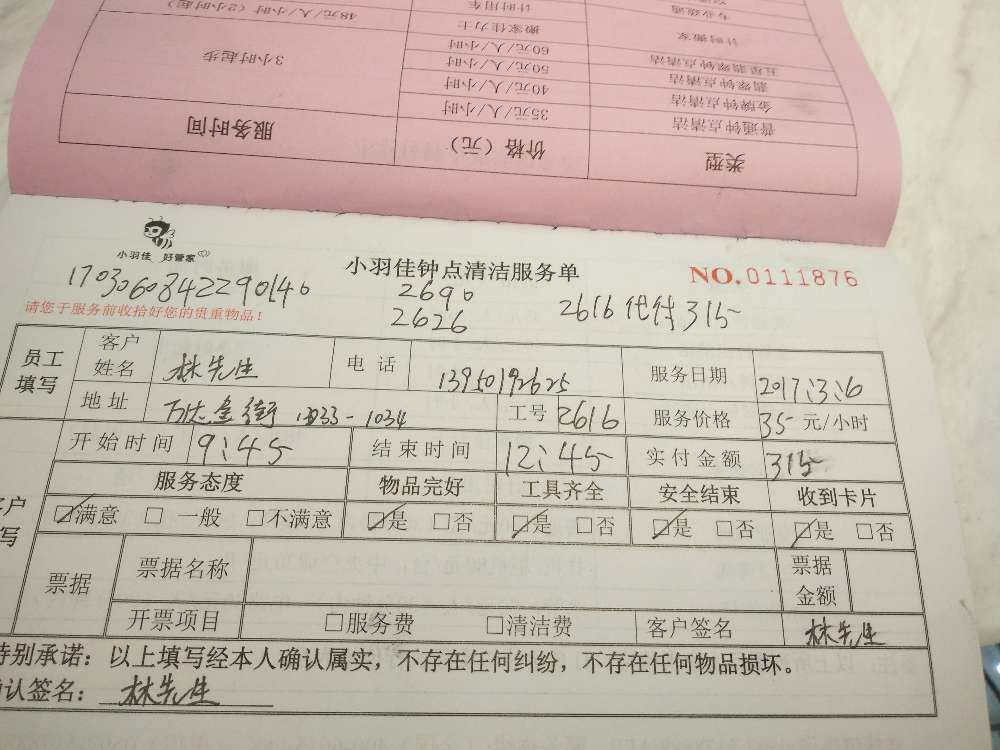 专业疏通
计时搬家 搬家佳力士 计时用车 48元/人/小时（2小时起
五星翡翠钟点清洁 60元/人/小时
翡翠钟点清洁 50元/人/小时
金牌钟点清洁 40元/人/小时 3小时起步
普通钟点清洁 35元/人/小时
类型 价格（元） 服务时间
小羽佳 好管家
小羽佳钟点清洁服务单 NO.0111876
1703060842290140 2690 2616代付315
2626
请您于服务前收拾好您的贵重物品！
员工填写 客户姓名 林先生 电话 13950192625 服务日期 2017.3.6
地址 万达金街 1033-1034 工号 2616 服务价格 35元/小时
开始时间 9:45 结束时间 12:45 实付金额 315
服务态度 物品完好 工具齐全 安全结束 收到卡片
☑满意 □一般 □不满意 ☑是 □否 ☑是 □否 ☑是 □否 ☑是 □否
票据 票据名称 票据金额
开票项目 □服务费 □清洁费 客户签名 林先生
特别承诺：以上填写经本人确认属实，不存在任何纠纷，不存在任何物品损坏。
确认签名：林先生